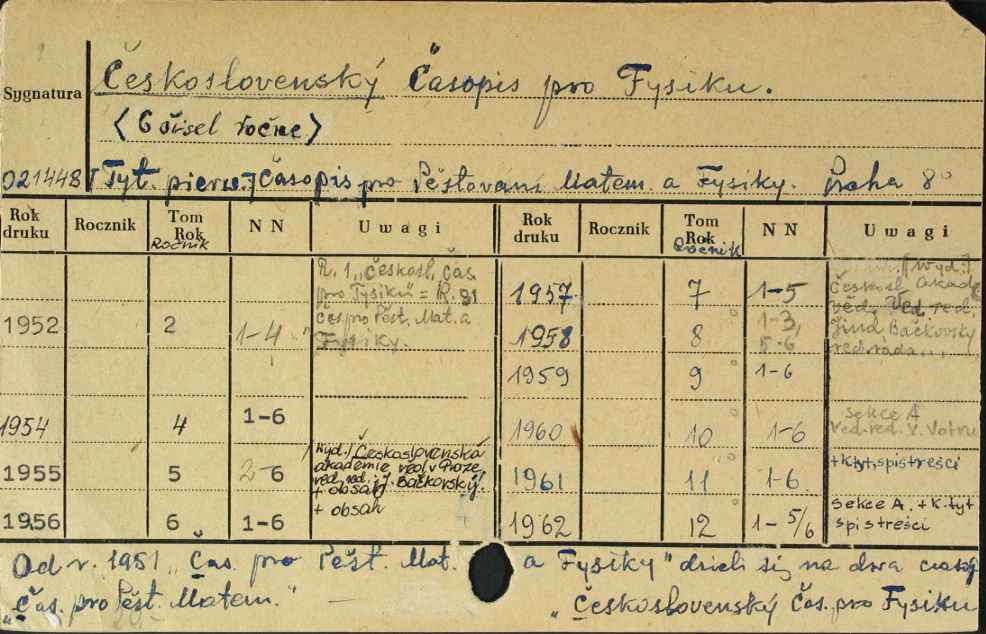 Československý Časopis pro Fysiku.
Sygnatura
(6 čísel ročne)
021448 [Tyt. pierw.] Časopis pro Pěstování Matem. a Fysiky. Praha 8°
Rok druku | Rocznik | Tom Rok Ročnik | N N | Uwagi | Rok druku | Rocznik | Tom Rok Ročnik | N N | Uwagi
R. 1 „Českosl. Čas.
pro Fysiku" = R. 81
Čas. pro Pěst. Mat. a
Fysiky.
1952 2 1-4
1954 4 1-6
1955 5 2-6
[Wyd.] Československá
akademie věd v Praze,
ved. red.: J. Bačkovský.
+ obsah
1956 6 1-6 + obsah
1957 7 1-5
[Wyd.]
Českosl. akad.
věd. Ved. red.
Jind. Bačkovský
red. rada...
1958 8 1-3, 5-6
1959 9 1-6
1960 10 1-6
Sekce A
Ved. red. V. Votru
1961 11 1-6 + K.tyt, spis treści
1962 12 1-5/6
Sekce A. + K.tyt
spis treści
Od r. 1951 „Čas. pro Pěst. Mat. a Fysiky" dzieli się na dwa
„Čas. pro Pěst. Matem." — „Československý Čas. pro Fysiku